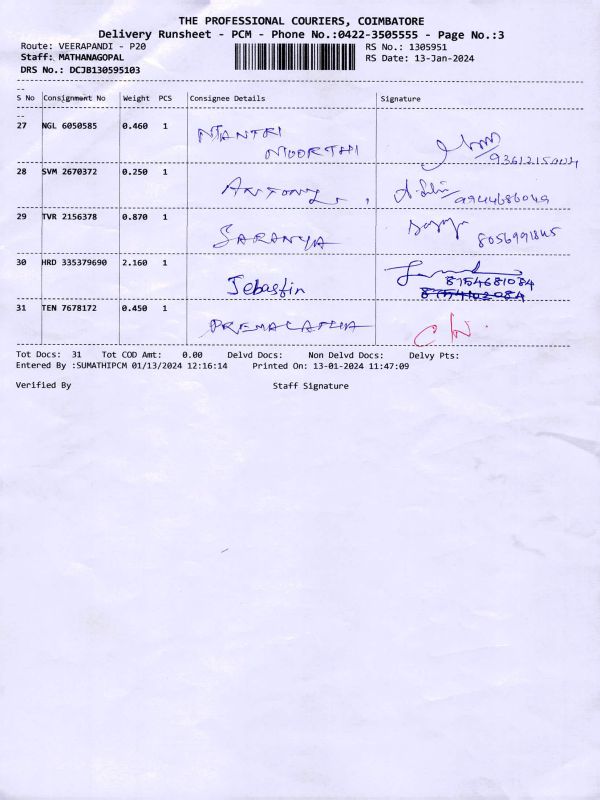 THE PROFESSIONAL COURIERS, COIMBATORE
Delivery Runsheet - PCM - Phone No.:0422-3505555 - Page No.:3
Route: VEERAPANDI - P20 RS No.: 1305951
Staff: MATHANAGOPAL RS Date: 13-Jan-2024
DRS No.: DCJB130595103
S No Consignment No Weight PCS Consignee Details Signature
27 NGL 6050585 0.460 1 MANTRI
MOORTHI
28 SVM 2670372 0.250 1 ANTONY
9944686049
29 TVR 2156378 0.870 1 SARANYA
8056991845
30 HRD 335379690 2.160 1 Jebastin
8754681084
31 TEN 7678172 0.450 1 PREMALATHA
Tot Docs: 31 Tot COD Amt: 0.00 Delvd Docs: Non Delvd Docs: Delvy Pts:
Entered By :SUMATHIPCM 01/13/2024 12:16:14 Printed On: 13-01-2024 11:47:09
Verified By Staff Signature